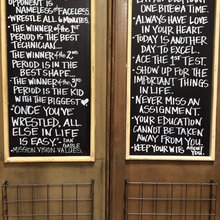 OPPONENT IS
NAMELESS & FACELESS.
• WRESTLE ALL 6 MINUTES.
• THE WINNER OF THE 1ST
PERIOD IS THE BEST
TECHNICIAN...
• THE WINNER OF THE 2ND
PERIOD IS IN THE
BEST SHAPE...
• THE WINNER OF THE 3RD
PERIOD IS THE KID
WITH THE BIGGEST ♥
• "ONCE YOU'VE
WRESTLED, ALL
ELSE IN LIFE
IS EASY." DAN
GABLE
MISSION VISION VALUES.
ONE BITE @ A TIME.
• ALWAYS HAVE LOVE
IN YOUR HEART.
• TODAY IS ANOTHER
DAY TO EXCEL.
• ACE THE 1ST TEST.
• SHOW UP FOR THE
IMPORTANT THINGS
IN LIFE.
• NEVER MISS AN
ASSIGNMENT.
• YOUR EDUCATION
CANNOT BE TAKEN
AWAY FROM YOU.
• KEEP YOUR WITS ABOUT
YOU.